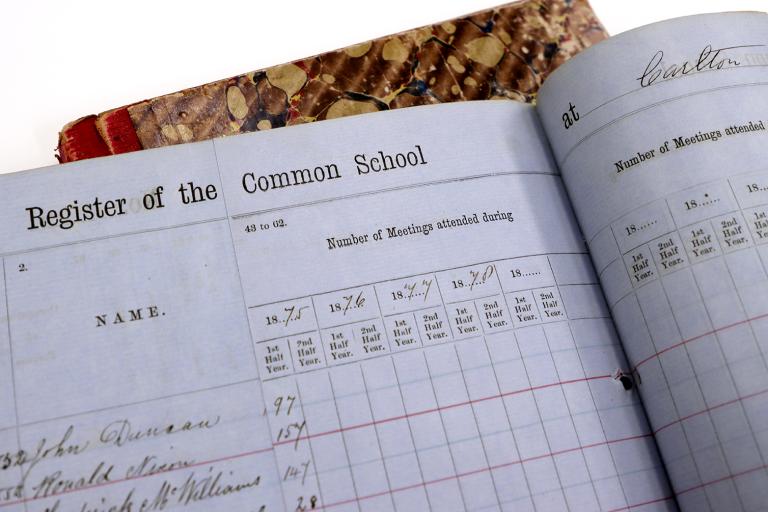 Register of the Common School
at Carlton
2.
NAME.
43 to 62.
Number of Meetings attended during
1875 1876 1877 1878 18......
1st Half Year. 2nd Half Year. 1st Half Year. 2nd Half Year. 1st Half Year. 2nd Half Year. 1st Half Year. 2nd Half Year. 1st Half Year. 2nd Half Year.
John Duncan 197
Ronald Nixon 157
McWilliams 147
28
Number of Meetings attended
18...... 18...... 18...
1st Half Year. 2nd Half Year. 1st Half Year. 2nd Half Year. 1st Half Year.